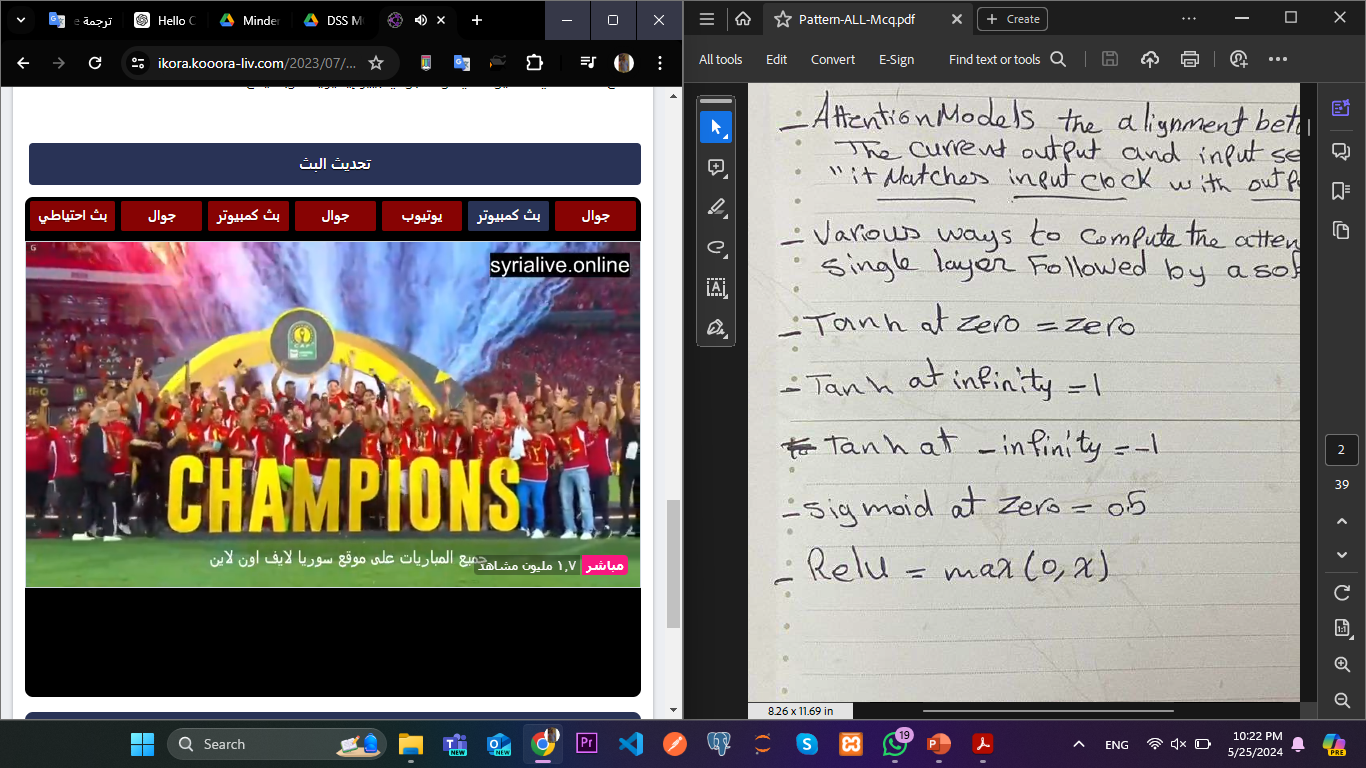 ترجمة
Hello C
Minder
DSS M
ikora.kooora-liv.com/2023/07/...
تحديث البث
جوال
بث كمبيوتر
يوتيوب
جوال
بث كمبيوتر
جوال
بث احتياطي
syrialive.online
CAF
CHAMPIONS
جميع المباريات على موقع سوريا لايف اون لاين
مباشر ١,٧ مليون مشاهد
Pattern-ALL-Mcq.pdf
Create
All tools
Edit
Convert
E-Sign
Find text or tools
- Attention Models the alignment bet
The current output and input se
"it Matches input clock with outp
- Various ways to compute the atten
single layer Followed by a sof
- Tanh at zero = zero
- Tanh at infinity = 1
Tanh at - infinity = -1
- sigmoid at zero = 05
- Relu = max(0, x)
2
39
8.26 x 11.69 in
Search
NEW
NEW
19
ENG
10:22 PM
5/25/2024
PRE